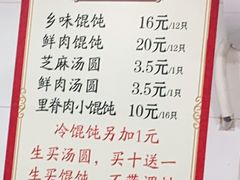 乡味馄饨 16元/12只
鲜肉馄饨 20元/12只
芝麻汤圆 3.5元/1只
鲜肉汤圆 3.5元/1只
里脊肉小馄饨 10元/16只
冷馄饨另加1元
生买汤圆，买十送一
生买馄饨，不带调料